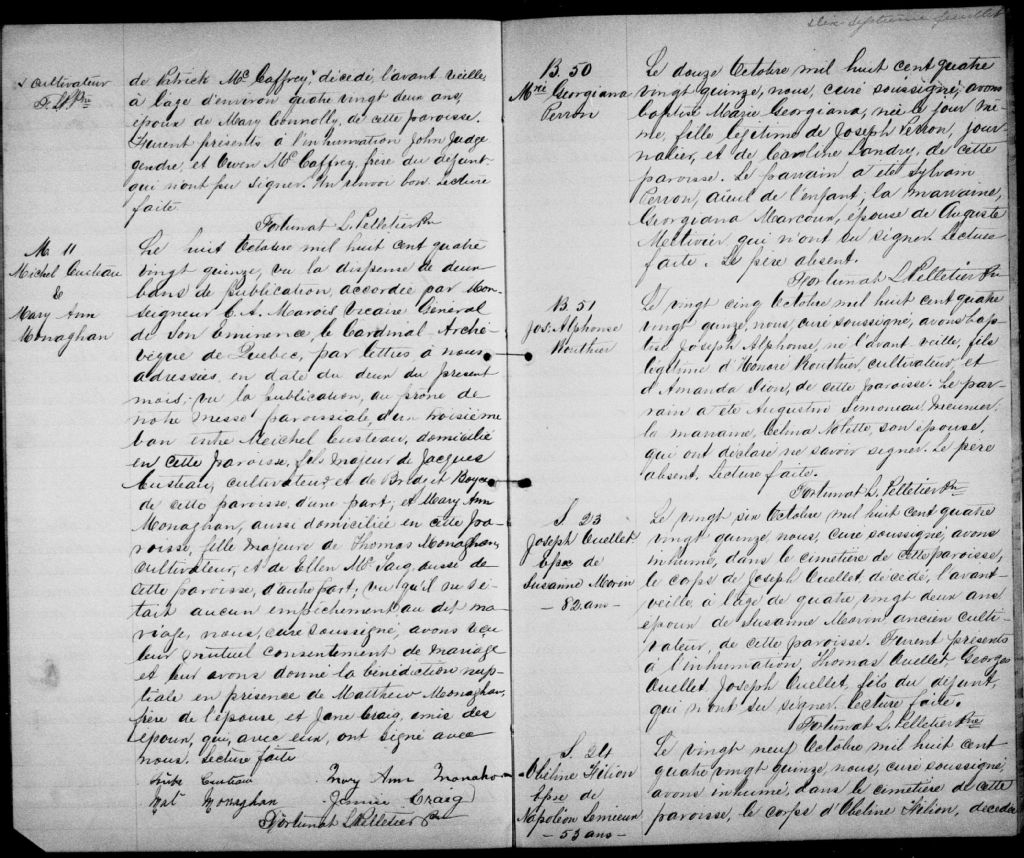 Dix-septième feuillet
x cultivateur
F. L. P. Ptre
de Patrick McCaffrey,x décédé, l'avant veille,
à l'age d'environ quatre vingt deux ans,
époux de Mary Connolly, de cette paroisse.
Furent présents à l'inhumation John Judge
gendre, et Owen McCaffrey, frère du défunt
qui n'ont su signer. Un renvoi bon. Lecture
faite.
Fortunat L. Pelletier Ptre
M. 11
Michel Custeau
&
Mary Ann
Monaghan
Le huit Octobre mil huit cent quatre
vingt quinze, vu la dispense de deux
bans de publication, accordée par Mon-
seigneur C. A. Marois Vicaire Général
de Son Eminence, le Cardinal Arche-
vêque de Quebec, par lettres à nous
adressées, en date du deux du présent
mois; vu la publication, au prône de
notre messe paroissiale, d'un troisième
ban entre Meichel Custeau, domicilié
en cette paroisse, fils majeur de Jacques
Custeau, cultivateur, et de Bridget Boyce
de cette paroisse, d'une part; et Mary Ann
Monaghan, aussi domiciliée en cette pa-
roisse, fille majeure de Thomas Monaghan,
cultivateur, et de Ellen Mc aussi de
cette paroisse, d'autre part; vu qu'il ne s'é-
tait aucun empêchement au dit ma-
riage, nous, curé soussigné, avons reçu
leur mutuel consentement de mariage
et leur avons donné la bénédiction nup-
tiale en présence de Matthew Monaghan,
frère de l'épouse et Jane Craig, amis des
époux, qui, avec eux, ont signé avec
nous. Lecture faite
Mike Custeau Mary Ann Monahon
Mat Monaghan Jennie Craig
Fortunat L. Pelletier Ptre
B. 50
Mrie Georgiana
Perron
Le douze Octobre mil huit cent quatre
vingt quinze, nous, curé soussigné, avons
baptisé Marie Georgiana, née le jour mê-
me, fille légitime de Joseph Perron, jour-
nalier, et de Caroline Landry, de cette
paroisse. Le parrain a été Sylvain
Perron, aïeul de l'enfant; la marraine,
Georgiana Marcoux, épouse de Auguste
Metivier qui n'ont su signer. Lecture
faite. Le père absent.
Fortunat L. Pelletier Ptre
B. 51
Jos. Alphonse
Routhier
Le vingt cinq Octobre mil huit cent quatre
vingt quinze, nous, curé soussigné, avons bap-
tisé Joseph Alphonse, né l'avant veille, fils
légitime d'Honoré Routhier, cultivateur, et
d'Amanda Dion, de cette paroisse. Le par-
rain a été Augustin Simoneau, meunier,
la marraine, Celina Nolette, son épouse,
qui ont déclaré ne savoir signer. Le père
absent. Lecture faite.
Fortunat L. Pelletier Ptre
S. 23
Joseph Ouellet
Epx de
Susanne Morin
- 82 ans -
Le vingt six Octobre mil huit cent quatre
vingt quinze, nous, curé soussigné, avons
inhumé, dans le cimetière de cette paroisse,
le corps de Joseph Ouellet, décédé, l'avant-
veille, à l'age de quatre vingt deux ans
époux de Susanne Morin, ancien culti-
vateur, de cette paroisse. Furent présents
à l'inhumation, Thomas Ouellet, Georges
Ouellet, Joseph Ouellet, fils du défunt,
qui n'ont su signer. Lecture faite.
Fortunat L. Pelletier Ptre
S. 24
Obeline Filion
Epse de
Napoléon Lemieux
- 53 ans -
Le vingt neuf Octobre mil huit cent
quatre vingt quinze, nous, curé soussigné,
avons inhumé, dans le cimetière de cette
paroisse, le corps d'Obeline Filion, décédée